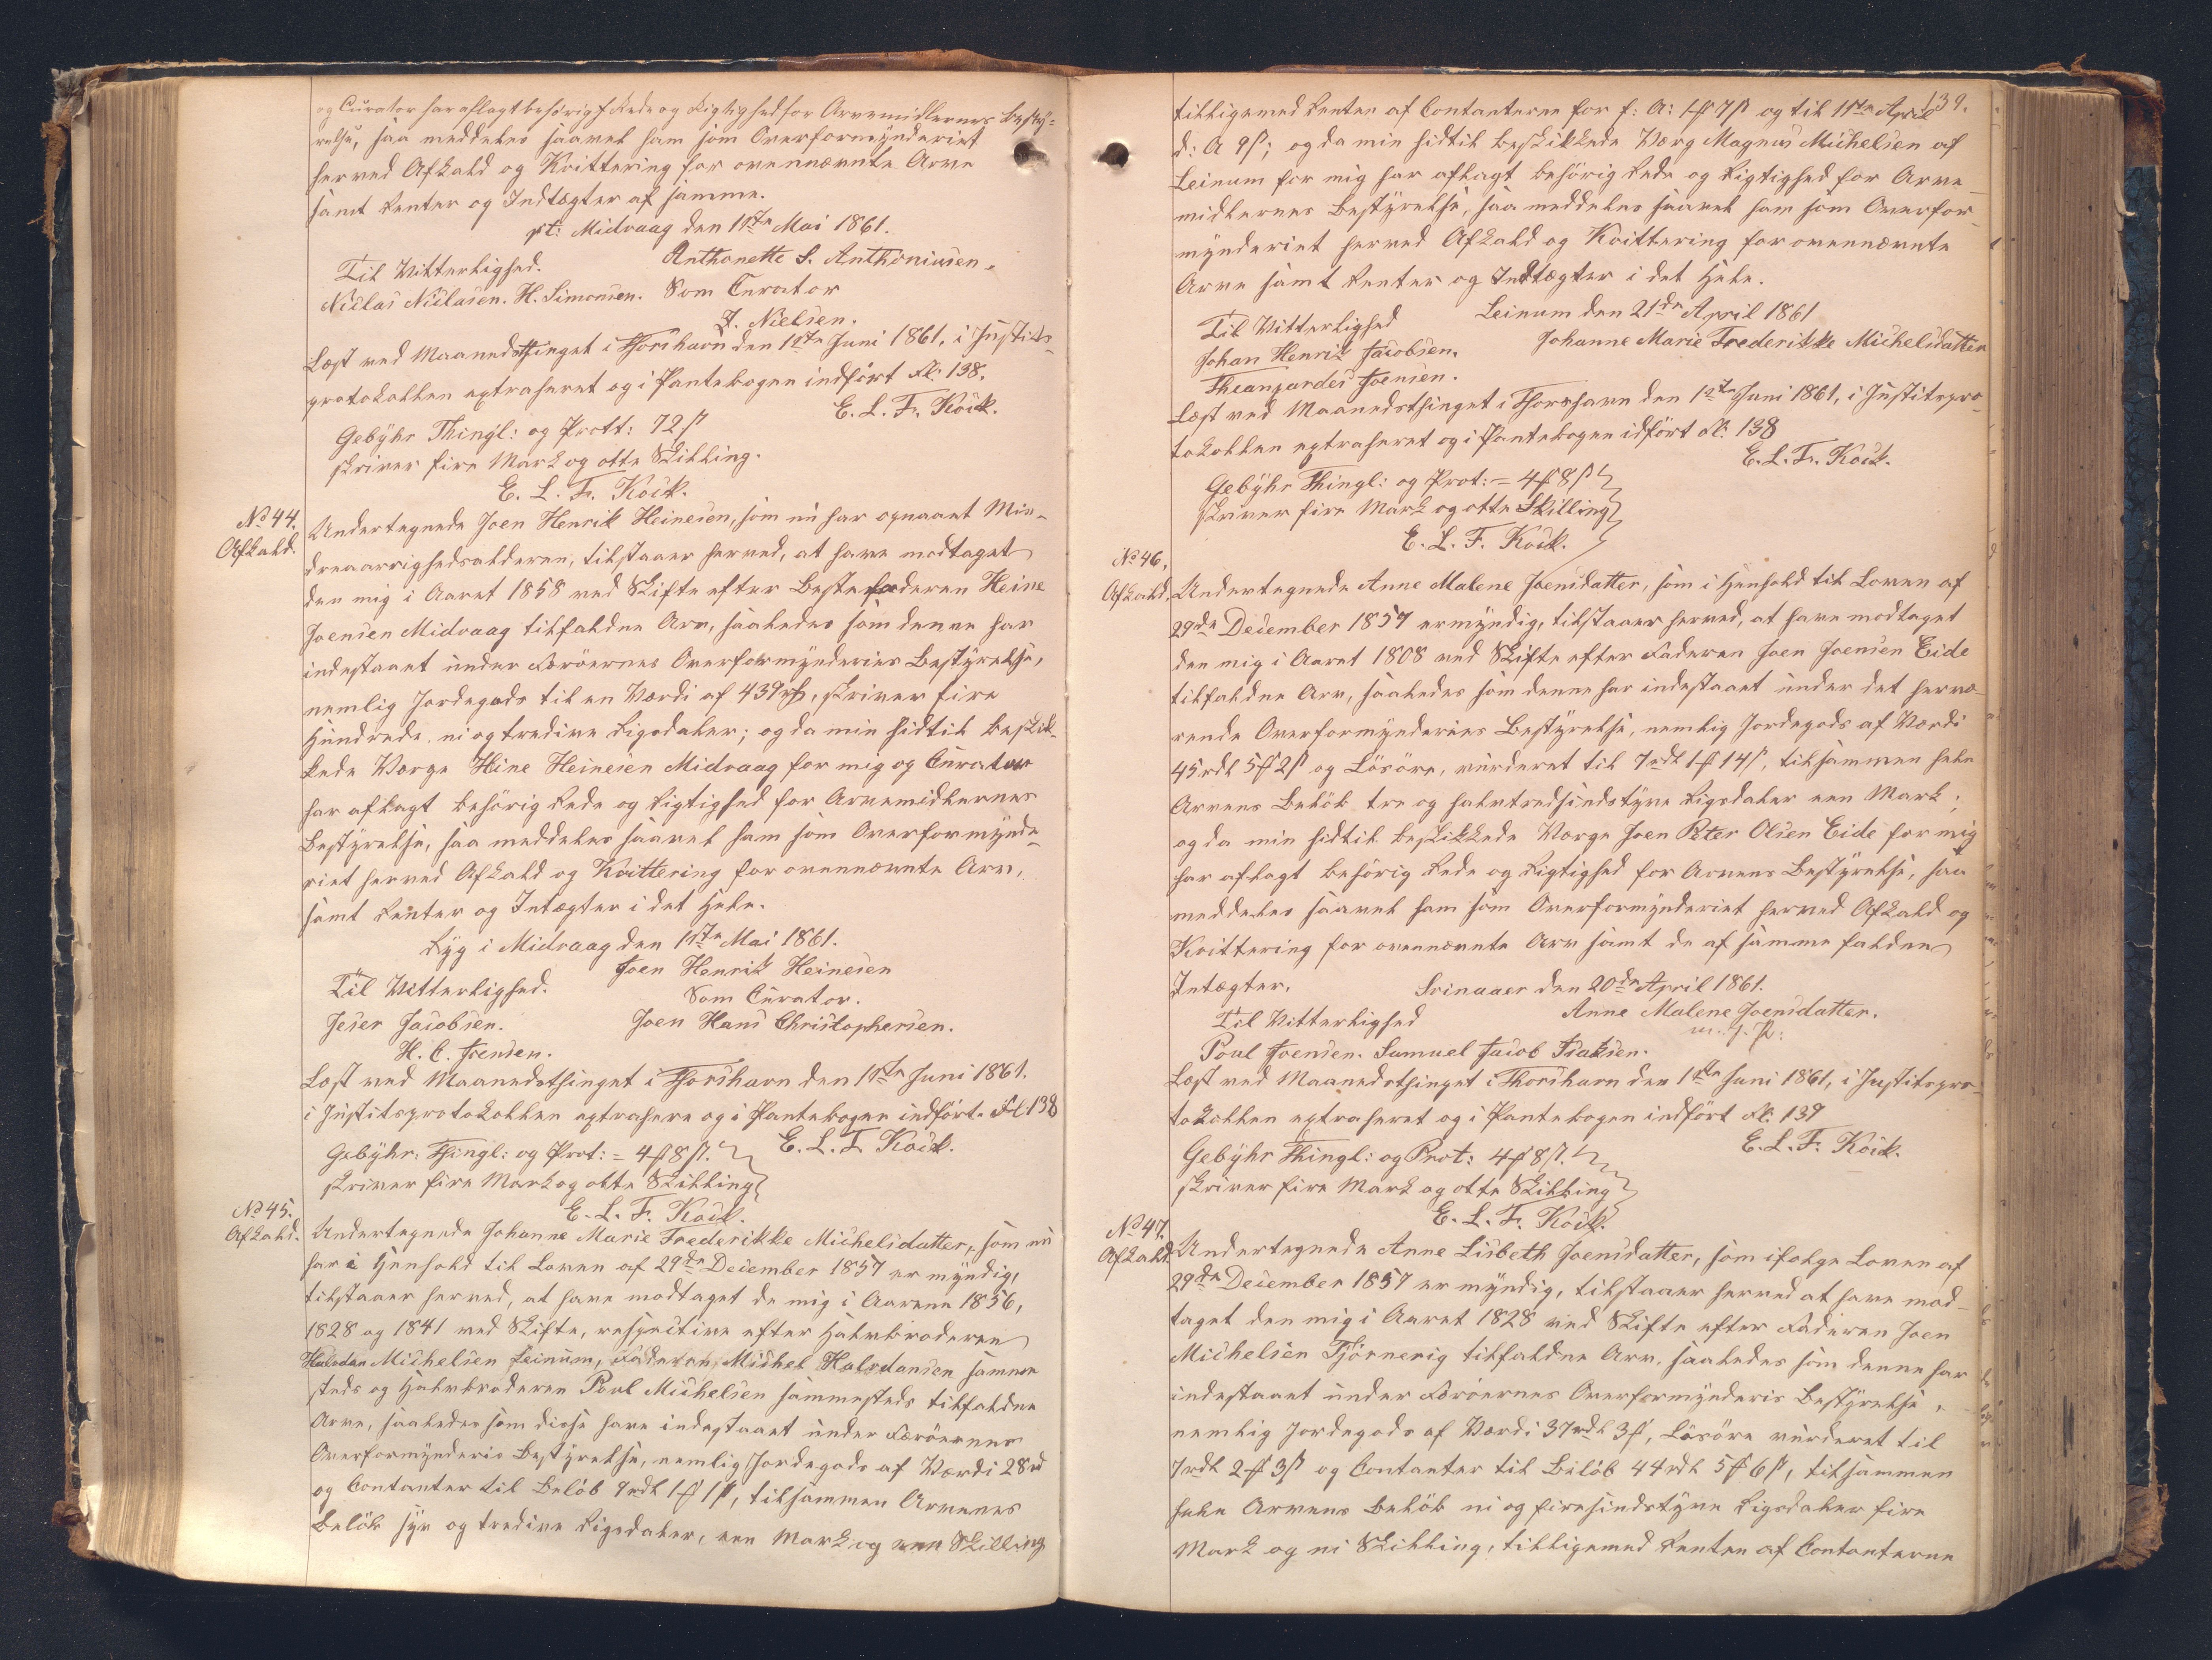 og Curator har aflagt behørig Rede og Rigtighed for Arvemidlernes Besty-
relse, saa meddeles saavel ham som Overformynderiet
herved Afkald og Kvittering for ovennævnte Arve
samt Renter og Indtægter af samme.
pt: Midvaag den 11te Mai 1861.
Til Vitterlighed. Anthonette S. Anthoniusen.
Niclas Niclasen. H. Simonsen. Som Curator
J. Nielsen.
Læst ved Maanedsthinget i Thorshavn den 1ste Juni 1861, i Justits-
protokollen extraheret og i Pantebogen indført Fl: 138.
E. L. F. Kock.
Gebyhr Thingl: og Prot: 72 ß
skriver fire Mark og otte Skilling.
E. L. F. Kock.
No 44.
Afkald.
Undertegnede Joen Henrik Heinesen, som nu har opnaaet Min-
dreaarighedsalderen, tilstaaer herved, at have modtaget
den mig i Aaret 1858 ved Skifte efter Bestefaderen Heine
Joensen Midvaag tilfaldne Arv, saaledes som denne har
indestaaet under Færöernes Overformynderies Bestyrelse,
nemlig Jordegods til en Værdi af 439 rd, skriver fire
Hundrede ni og tredive Rigsdaler; og da min hidtil beskik-
kede Værge Hine Heinesen Midvaag for mig og Curator
har aflagt behörig Rede og Rigtighed for Arvemidlernes
Bestyrelse, saa meddeles saavel ham som Overformynde-
riet herved Afkald og Kvittering for ovennævnte Arv,
samt Renter og Intægter i det Hele.
Ryg i Midvaag den 11te Mai 1861.
Til Vitterlighed. Joen Henrik Heinesen
Som Curator.
Jeser Jacobsen. Joen Hans Christophersen.
H. C. Joensen.
Læst ved Maanedsthinget i Thorshavn den 1ste Juni 1861.
i Justitsprotokollen extrahere og i Pantebogen indfört. Fl 138
Gebyhr: Thingl: og Prot: = 4 ₰ 8 ß. E. L. F. Kock.
skriver fire Mark og otte Skilling
E. L. F. Kock.
No 45.
Afkald.
Undertegnede Johanne Marie Frederikke Michelsdatter, som nu
har i Henhold til Loven af 29de December 1857 er myndig,
tilstaaer herved, at have modtaget de mig i Aarene 1856,
1828 og 1841 ved Skifte, respective efter Halvbroderen
Halvdan Michelsen Leinum, Faderen Michel Halvdansen samme
steds og Halvbroderen Poul Michelsen sammesteds tilfaldne
Arve, saaledes som disse have indestaaet under Færöernes
Overformynderis Bestyrelse, nemlig Jordegods af Værdi 28 rd
og Contanter til Belöb 9 rdl 1 ₰ 1 ß, tilsammen Arvenes
Belöb syv og tredive Rigsdaler, een Mark og een Skilling
139.
tilligemed Renten af Contanterne for f: A: 1 ₰ 7 ß og til 11te April
d: A 9 ß; og da min hidtil beskikkede Værg Magnus Michelsen af
Leinum for mig har aflagt behörig Rede og Rigtighed for Arve-
midlernes Bestyrelse, saa meddeles saavel ham som Overfor-
mynderiet herved Afkald og Kvittering for ovennævnte
Arve samt Renter og Indtægter i det Hele.
Leinum den 21de April 1861
Til Vitterlighed Johanne Marie Frederikke Michelsdatter
Johan Henrik Jacobsen.
Joensen.
Læst ved Maanedsthinget i Thorshavn den 1ste Juni 1861, i Justitspro-
tokollen extraheret og i Pantebogen idfört Fl: 138
E. L. F. Kock.
Gebyhr Thingl: og Prot: = 4 ₰ 8 ß
skriver fire Mark og otte Skilling
E. L. F. Kock.
No 46.
Afkald.
Undertegnede Anne Malene Joensdatter, som i Henhold til Loven af
29de December 1857 ermyndig, tilstaaer herved, at have modtaget
den mig i Aaret 1808 ved Skifte efter Faderen Joen Joensen Eide
tilfaldne Arv, saaledes som denne har indestaaet under det hervæ-
rende Overformynderies Bestyrelse, nemlig Jordegods af Værdi
45 rdl 5 ₰ 2 ß og Lösöre, vurderet til 7 rdl 1 ₰ 14 ß, tilsammen hele
Arvens Belöb tre og halvtredsindstyve Rigsdaler een Mark;
og da min hidtil beskikkede Værge Joen Peter Olsen Eide for mig
har aflagt behörig Rede og Rigtighed for Arvens Bestyrelse, saa
meddeles saavel ham som Overformynderiet herved Afkald og
Kvittering for ovennævnte Arv samt de af samme faldne
Intægter. Svinaaer den 20de April 1861.
Til Vitterlighed Anne Malene Joensdatter.
m. f. P.
Poul Joensen. Samuel Jacob Isaksen.
Læst ved Maanedsthinget i Thorshavn den 1ste Juni 1861, i Justitspro-
tokollen extraheret og i Pantebogen indfört Fl: 139
E. L. F. Kock.
Gebyhr Thingl: og Prot: 4 ₰ 8 ß.
skriver fire Mark og otte Skilling
E. L. F. Kock.
No 47.
Afkald.
Undertegnede Anne Lisbeth Joensdatter, som ifölge Loven af
29de December 1857 er myndig, tilstaaer herved at have mod-
taget den mig i Aaret 1828 ved Skifte efter Faderen Joen
Michelsen Tjørnevig tilfaldne Arv, saaledes som denne har
indestaaet under Færöernes Overformynderis Bestyrelse,
nemlig Jordegods af Værdi 37 rdl 3 ₰, Lösöre vurderet til
7 rdl 2 ₰ 3 ß og Contanter til Belöb 44 rdl 5 ₰ 6 ß, tilsammen
hele Arvens Belöb ni og firesindstyve Rigsdaler fire
Mark og ni Skilling, tilligemed Renten af Contanterne